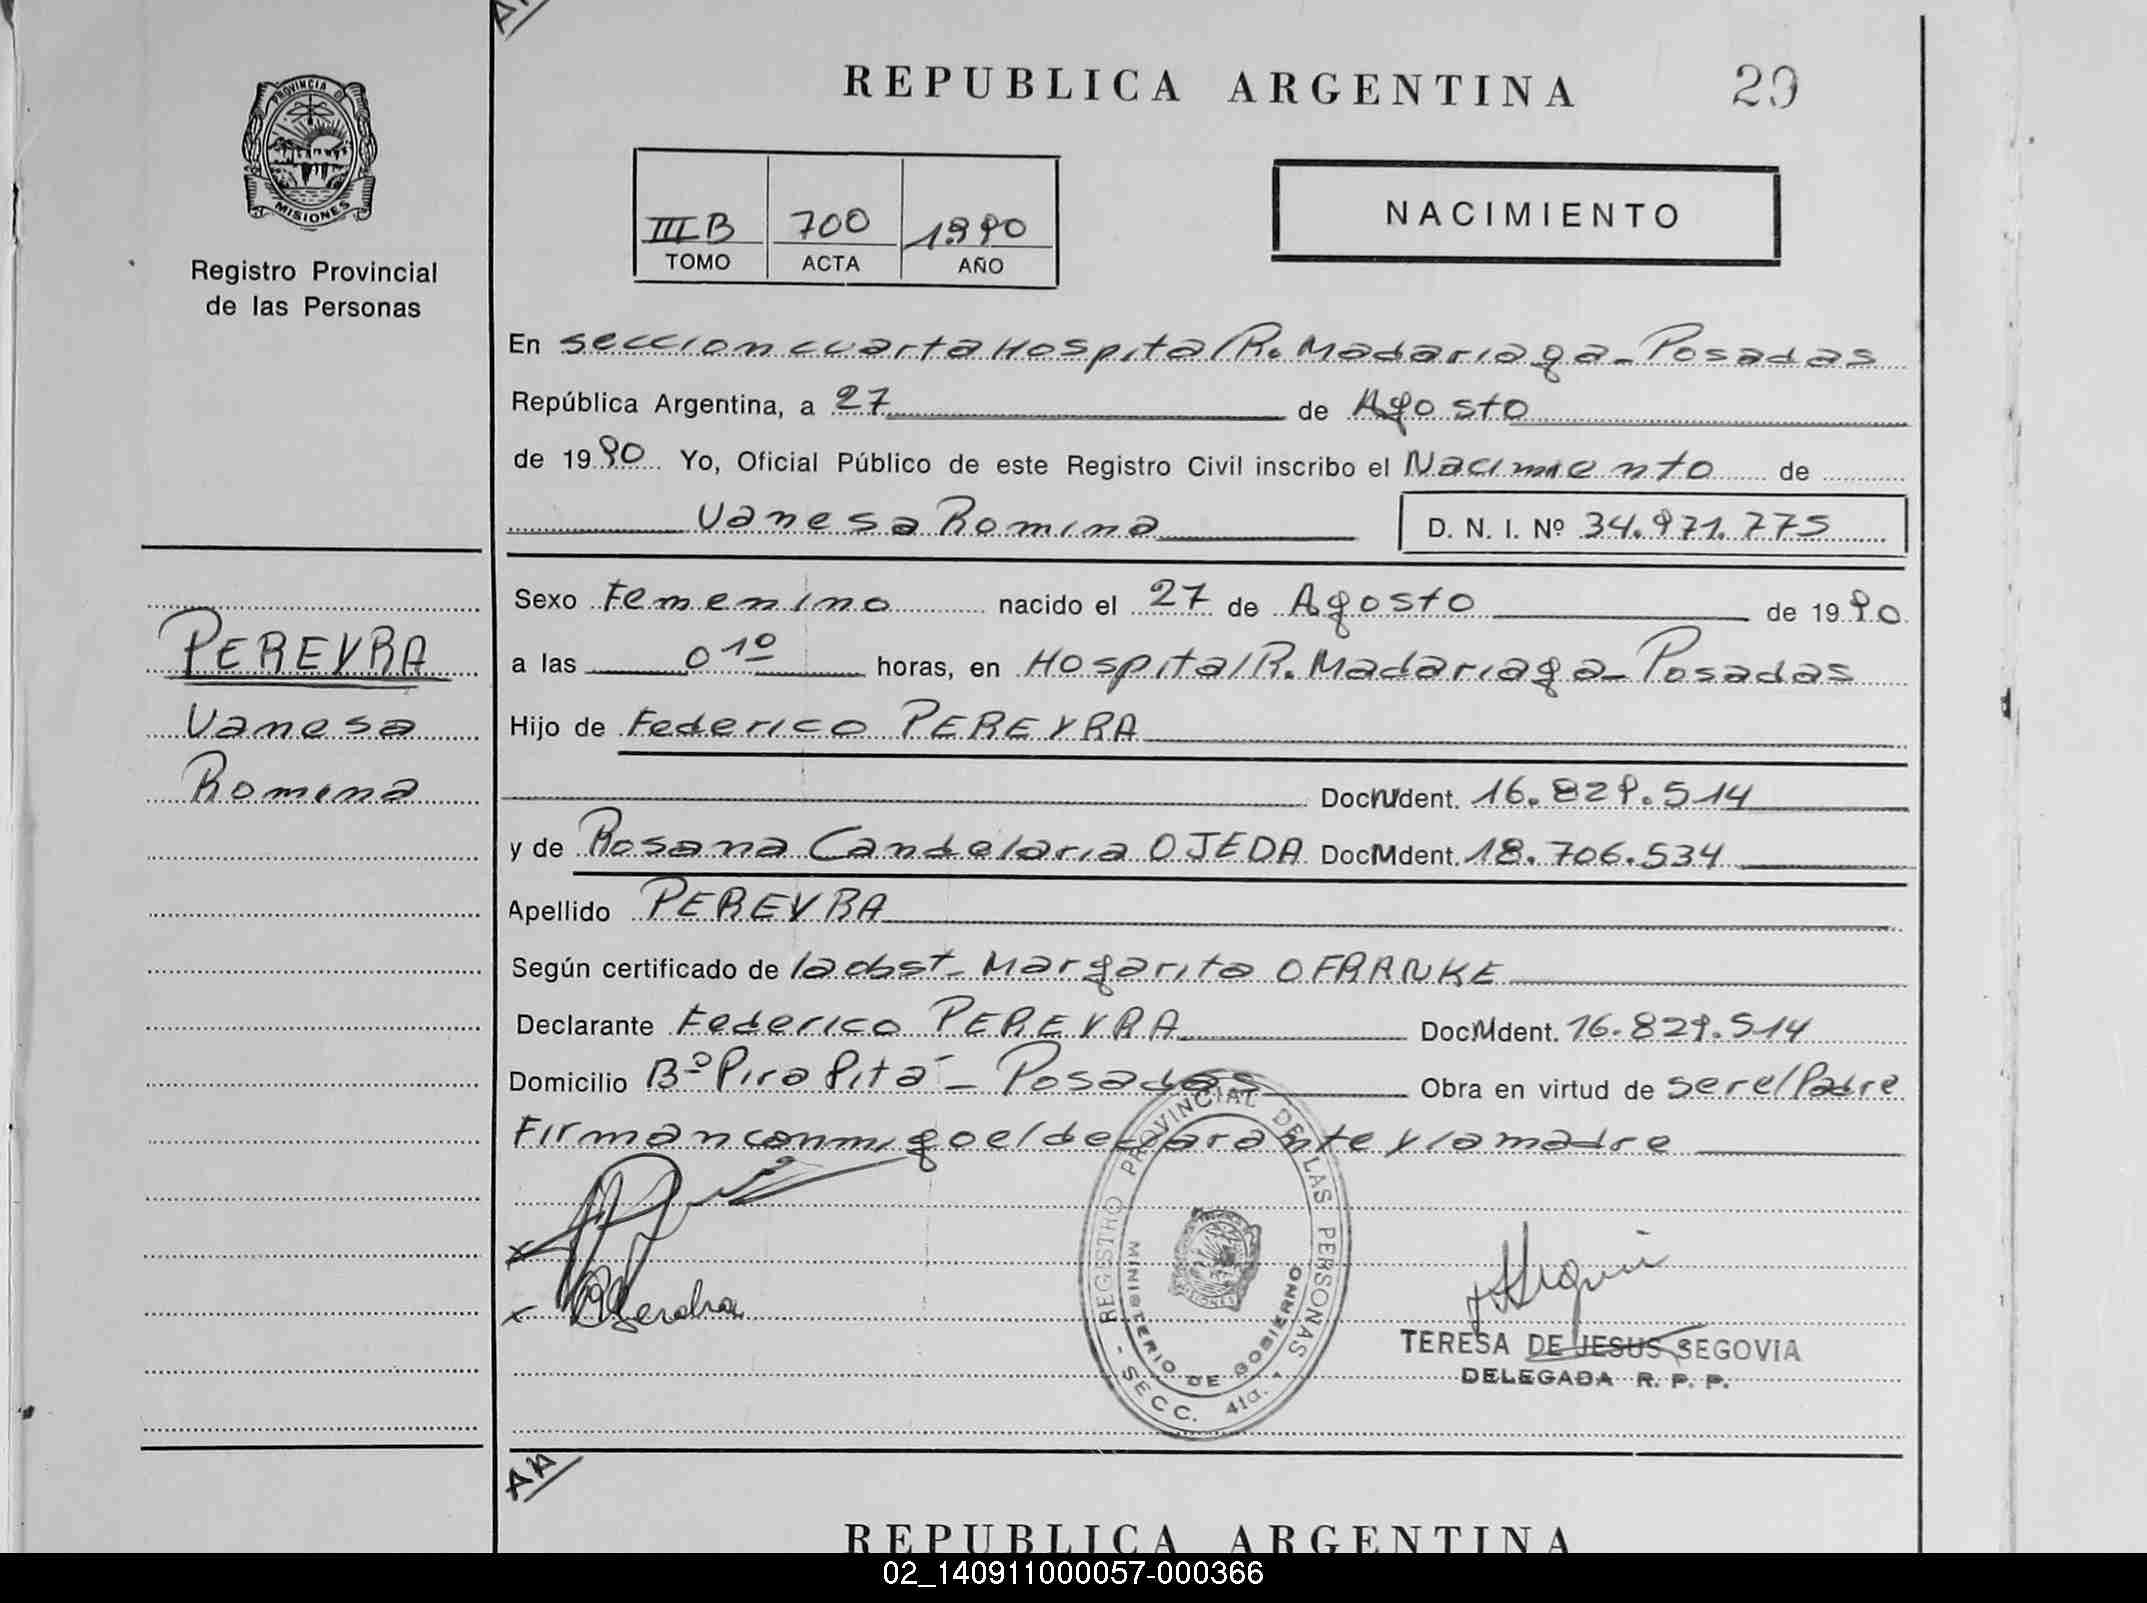 REPUBLICA ARGENTINA
29
PROVINCIA DE
MISIONES
Registro Provincial
de las Personas
III B 700 1990
TOMO ACTA AÑO
NACIMIENTO
En seccion cuarta Hospital R. Madariaga - Posadas
República Argentina, a 27 de Agosto
de 1990 Yo, Oficial Público de este Registro Civil inscribo el Nacimiento de
Vanesa Romina D. N. I. Nº 34.971.775
Sexo Femenino nacido el 27 de Agosto de 1990
a las 01º horas, en Hospital R. Madariaga - Posadas
Hijo de Federico PEREYRA
Doc. Ident. 16.829.514
y de Rosana Candelaria OJEDA Doc. Ident. 18.706.534
Apellido PEREYRA
Según certificado de la obst. Margarita O FRANKE
Declarante Federico PEREYRA Doc. Ident. 16.829.514
Domicilio Bº Pira Pitá - Posadas Obra en virtud de ser el Padre
Firman conmigo el declarante y la madre
PEREYRA
Vanesa
Romina
REGISTRO PROVINCIAL DE LAS PERSONAS
- SECC. 4ta. -
MINISTERIO DE GOBIERNO
MISIONES
TERESA DE JESUS SEGOVIA
DELEGADA R. P. P.
AA
REPUBLICA ARGENTINA
02_140911000057-000366